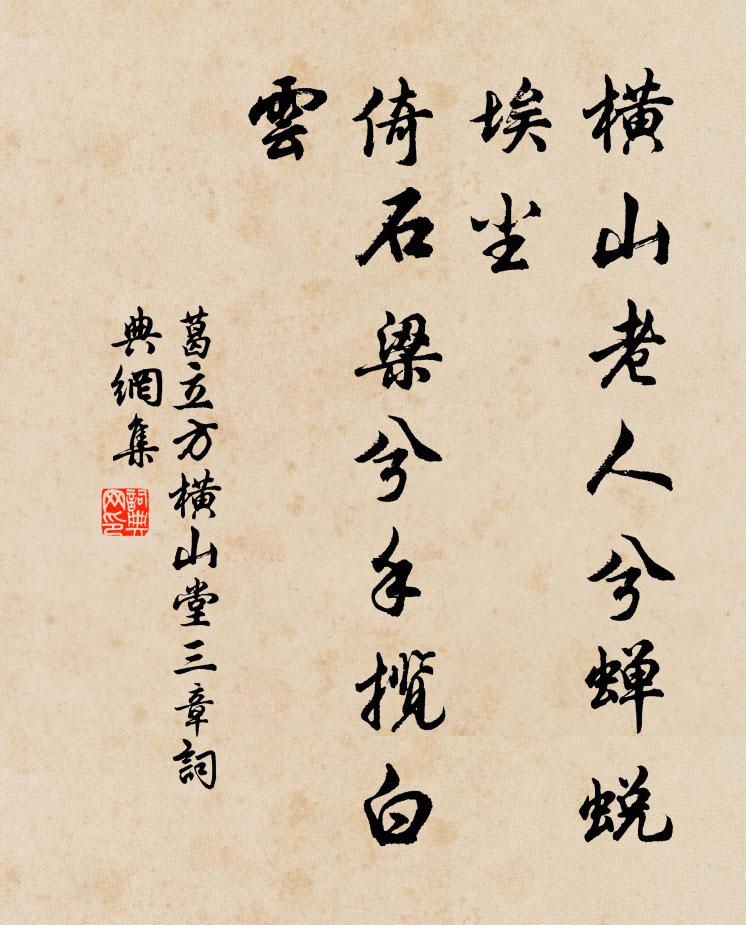 橫山老人兮蟬蛻
埃尘
倚石梁兮手攬白
雲
葛立方橫山堂三章詞
典網集
詞典
网印